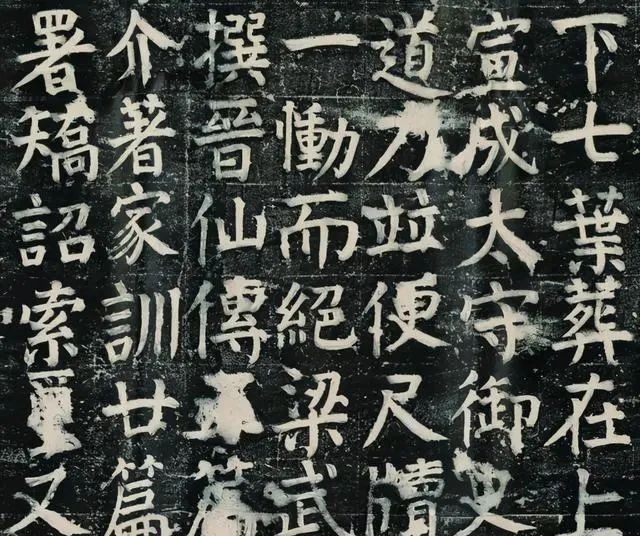 下七葉葬在上
宣成太守御史
道力並便尺牘
一慟而絕梁武
撰晉仙傳五篇
介著家訓廿篇
署矯詔索璽又